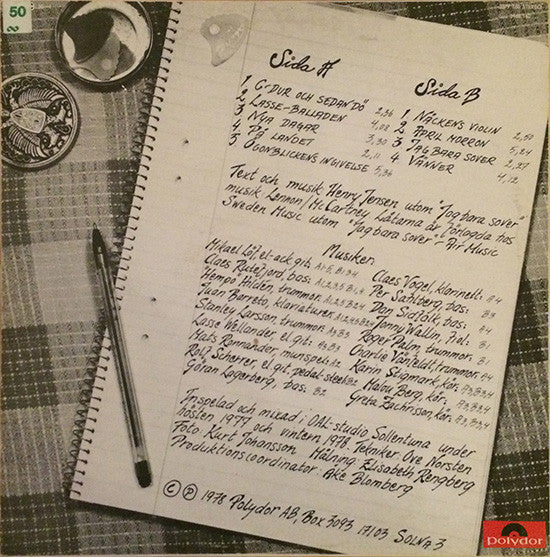 50
Sida A
1, G-DUR OCH SEDAN DÖ 2,56
2, LASSE-BALLADEN 4,02
3, NYA DAGAR 3,30
4, PÅ LANDET 2,11
5, ÖGONBLICKENS INGIVELSE 5,36
Sida B
1 NÄCKENS VIOLIN 2,50
2 APRIL MORRON 5,24
3 JAG BARA SOVER 2,27
4 VÄNNER 4,12
Text och musik Henry Jensen utom "Jag bara sover"
musik Lennon/McCartney Låtarna är förlagda hos
Sweden Music utom "Jag bara sover" - Air Music
Musiker:
Mikael Löf, el-ack git:
Claes Rydefjord, bas:
"Hempo" Hildén, trummor:
Juan Barreto, klaviaturer
Stanley Larsson, trummor A3 B3
Lasse Wellander, el git:
Mats Ronnander, munspel:
Rolf Scherer, el git, pedal-steel: B2
Göran Lagerberg, bas: B2
Claes Vogel, klarinett: A4
Per Sahlberg, bas: B3
Dan Sidfalk, bas: A4
Jonny Wallin, fiol: B1
Roger Palm, trummor: B1
Charlie Vänfeldt, trummor: A4
Karin Stigmark, kör:
Habou Berg, kör:
Greta Zachrisson, kör:
Inspelad och mixad i OAL-studio Sollentuna under
hösten 1977 och vintern 1978 Tekniker Ove Norsten
Foto: Kurt Johansson Målning Elisabeth Rengberg
Produktionscoordinator: Åke Blomberg
© ℗ 1978 Polydor AB, Box 3093 171 03 SOLNA 3
Polydor